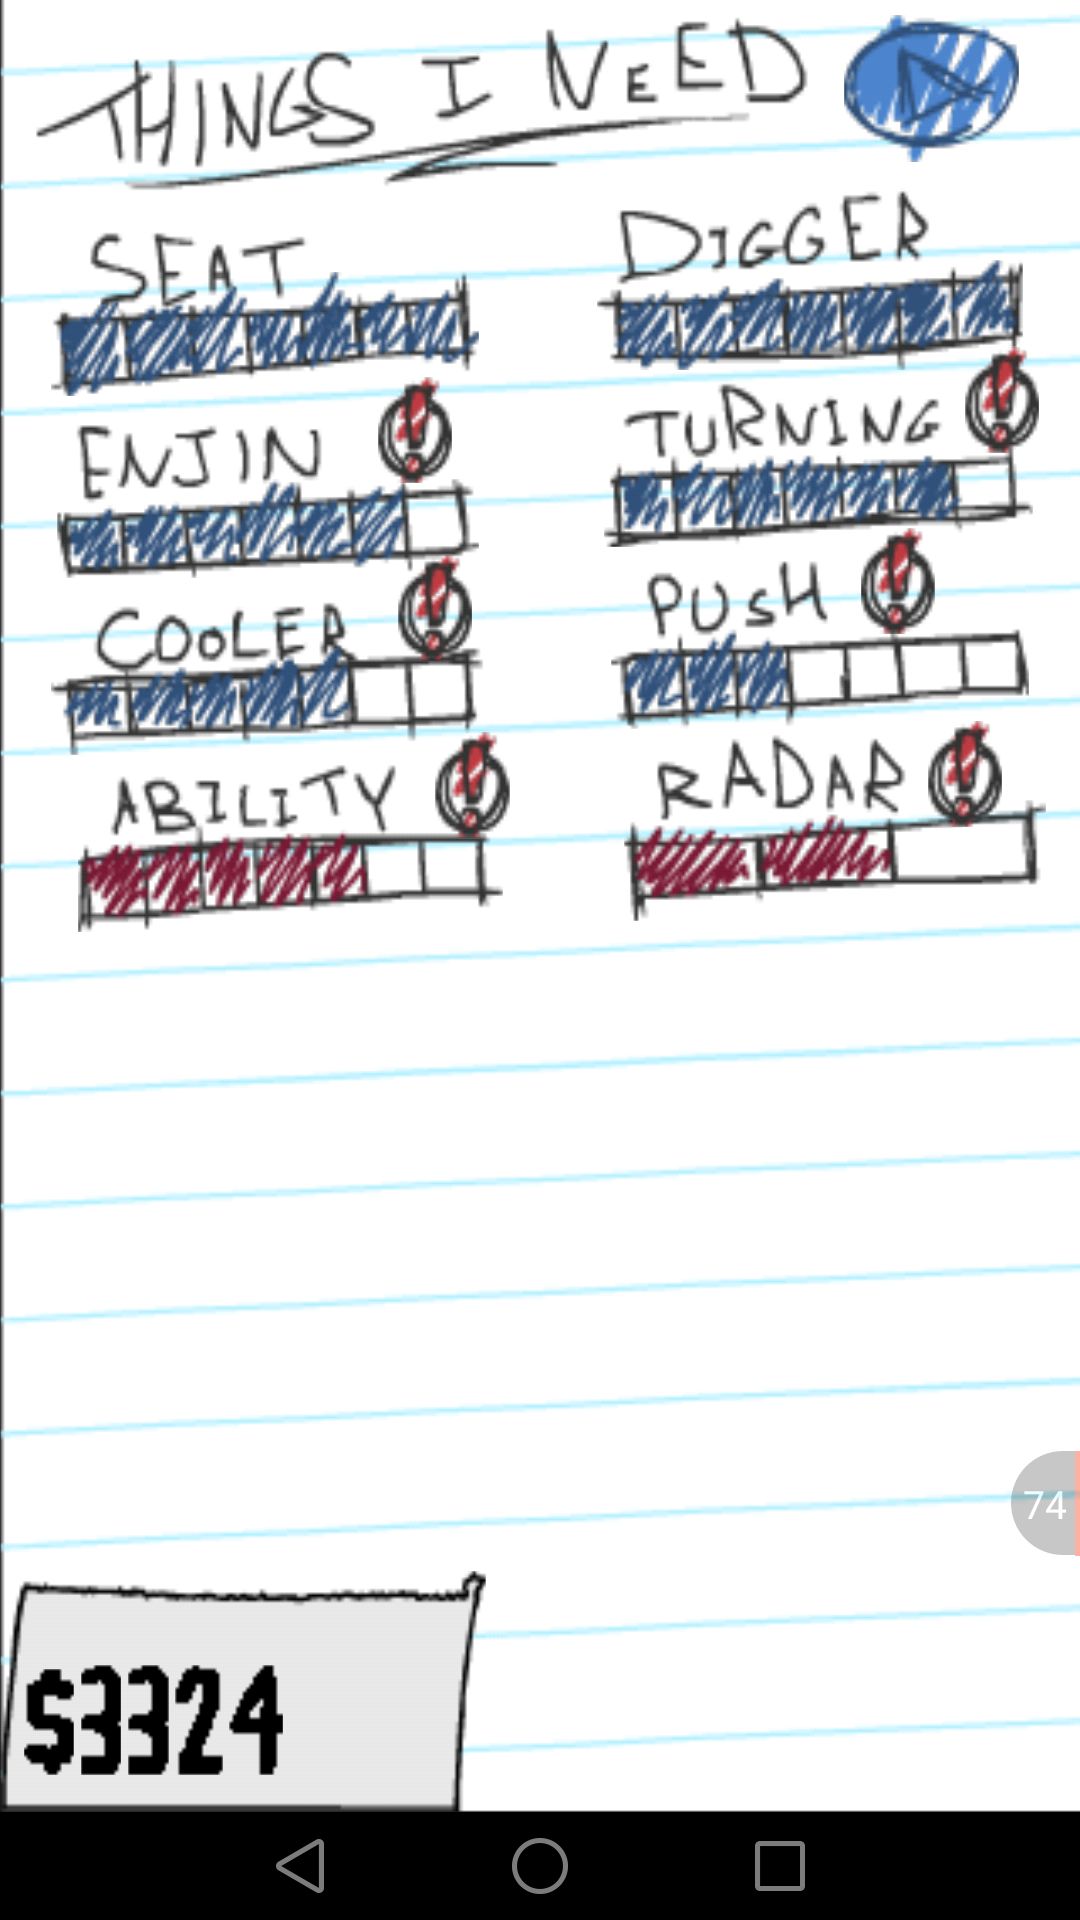 THINGS I NEED
SEAT
DIGGER
ENJIN
TURNING
COOLER
PUSH
ABILITY
RADAR
74
$3324